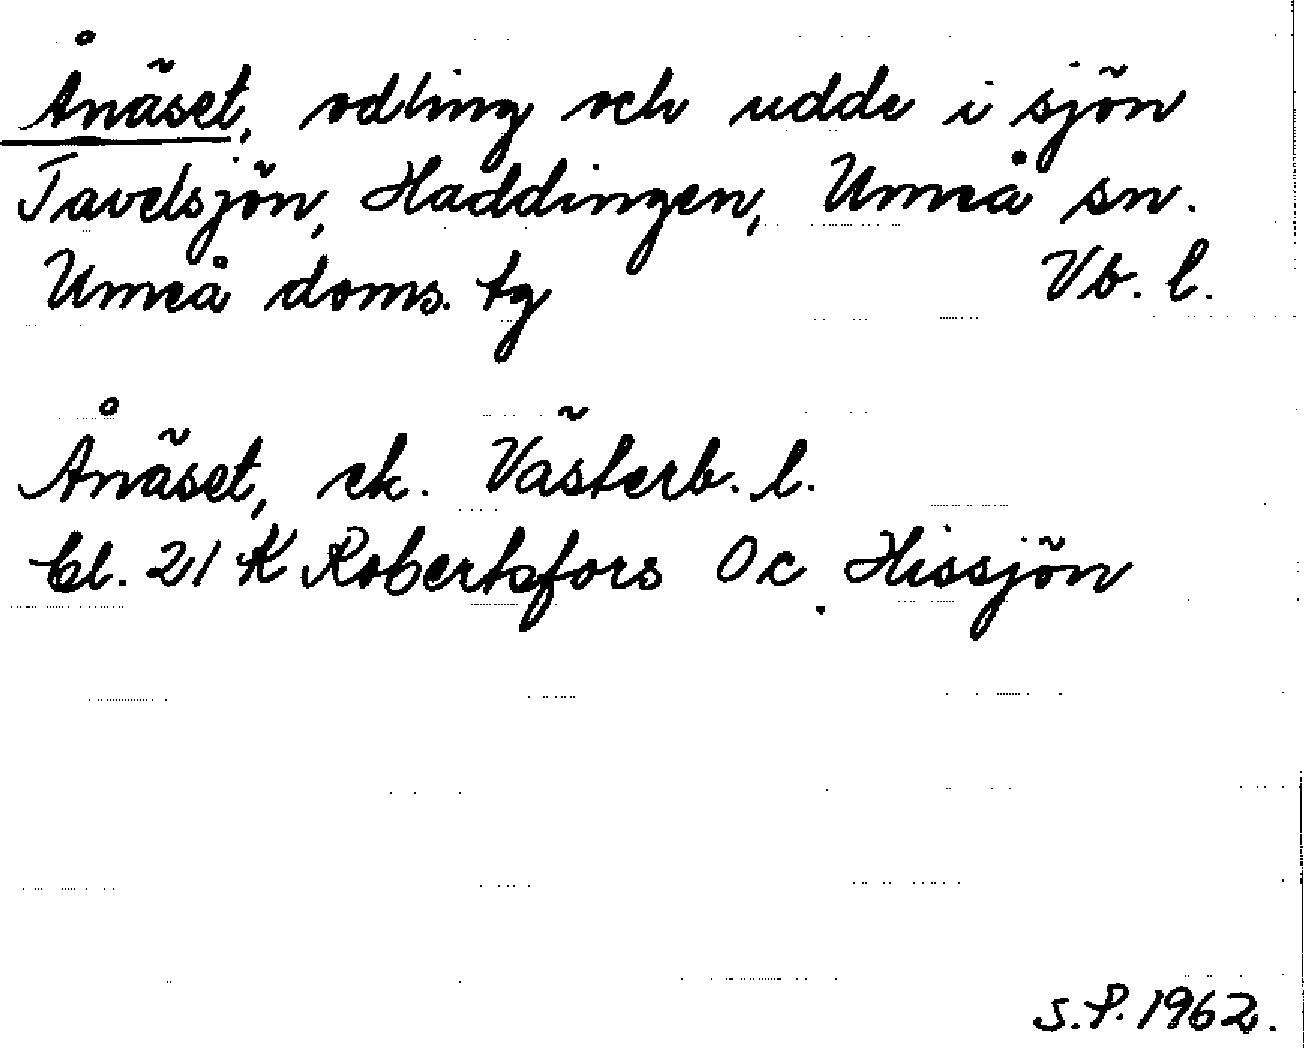 Ånäset, odling och udde i sjön
Tavelsjön, Haddingen, Umeå sn.
Umeå doms. tg Vb. l.
Ånäset, ek. Västerb. l.
bl. 21 K Robertsfors O c Hissjön
S.P. 1962.